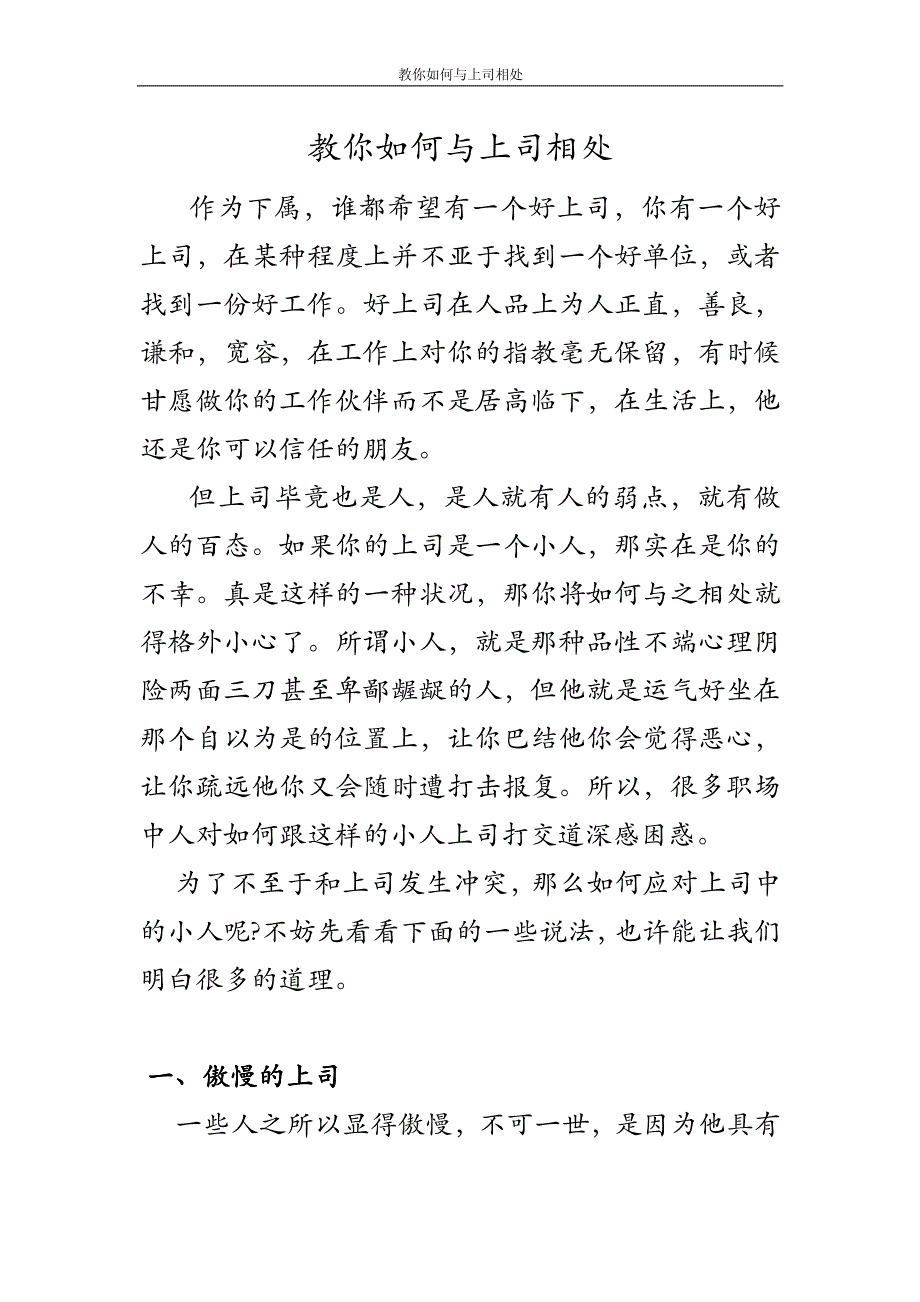 教你如何与上司相处
教你如何与上司相处
作为下属，谁都希望有一个好上司，你有一个好
上司，在某种程度上并不亚于找到一个好单位，或者
找到一份好工作。好上司在人品上为人正直，善良，
谦和，宽容，在工作上对你的指教毫无保留，有时候
甘愿做你的工作伙伴而不是居高临下，在生活上，他
还是你可以信任的朋友。
但上司毕竟也是人，是人就有人的弱点，就有做
人的百态。如果你的上司是一个小人，那实在是你的
不幸。真是这样的一种状况，那你将如何与之相处就
得格外小心了。所谓小人，就是那种品性不端心理阴
险两面三刀甚至卑鄙龌龊的人，但他就是运气好坐在
那个自以为是的位置上，让你巴结他你会觉得恶心，
让你疏远他你又会随时遭打击报复。所以，很多职场
中人对如何跟这样的小人上司打交道深感困惑。
为了不至于和上司发生冲突，那么如何应对上司中
的小人呢?不妨先看看下面的一些说法，也许能让我们
明白很多的道理。
一、傲慢的上司
一些人之所以显得傲慢，不可一世，是因为他具有